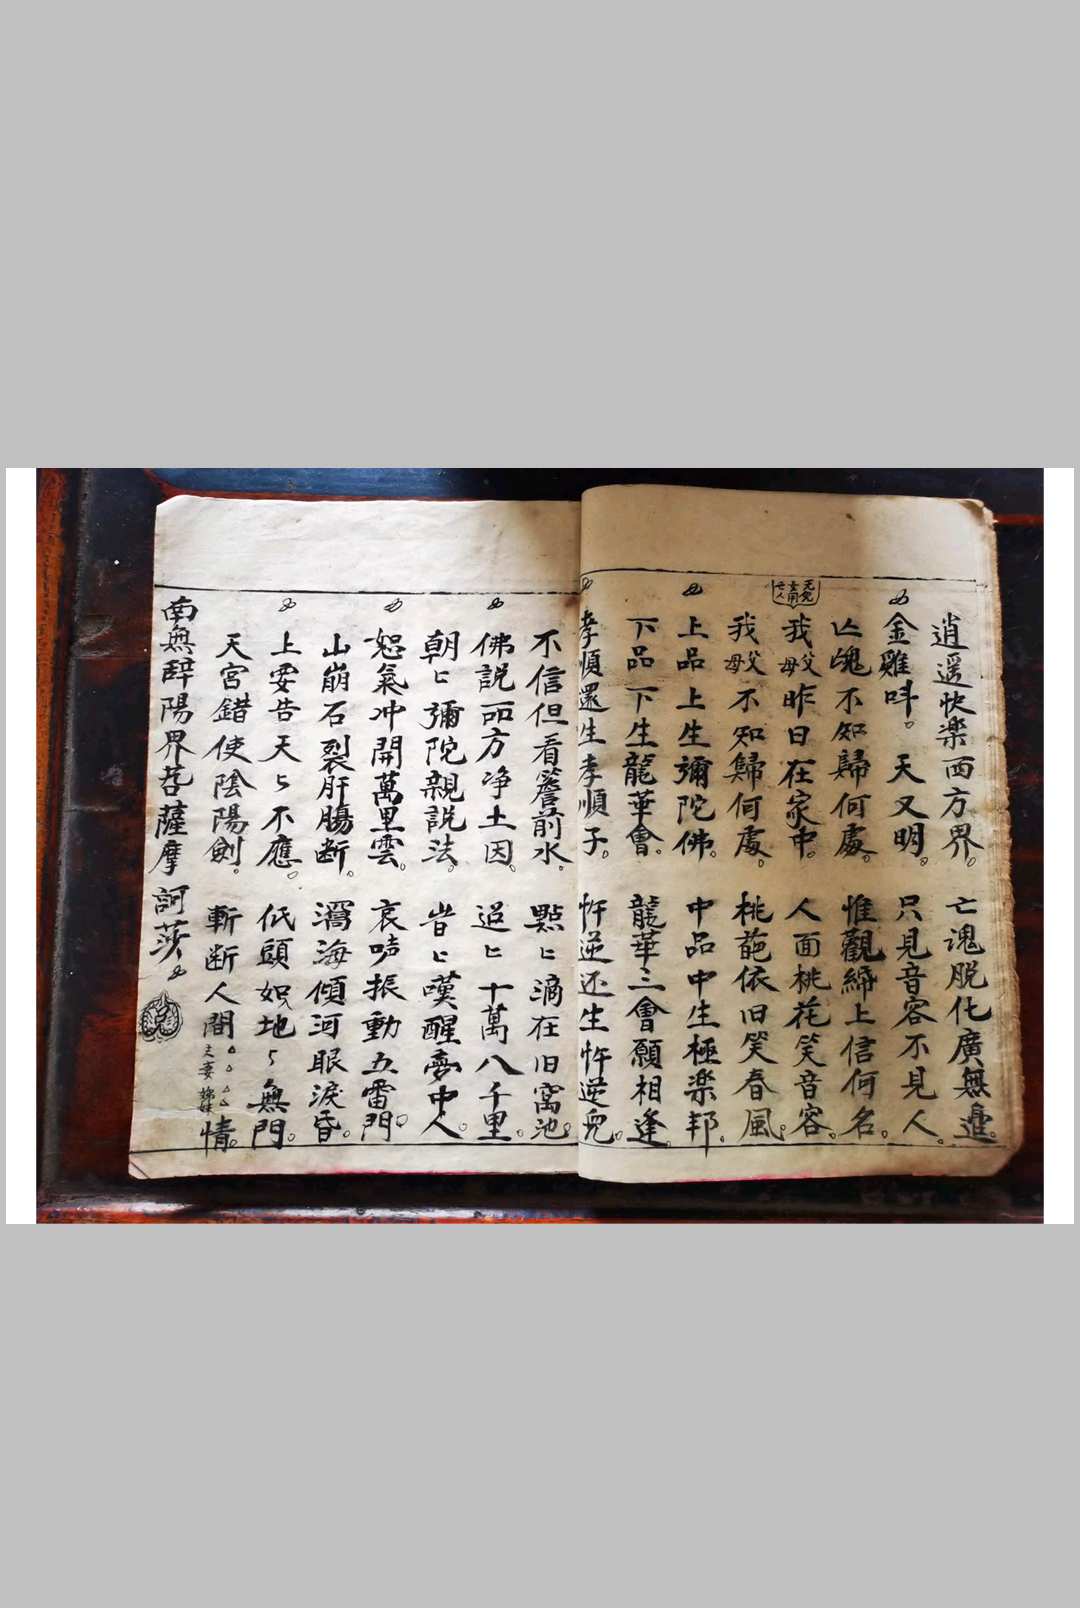 逍遥快樂西方界。亡魂脱化廣無邉。
金雞呌。天又明。只見音容不見人。
亾魂不知歸何處。惟觀綿上信何名。
我父母昨日在家中。人面桃花笑音容。
我父母不知歸何處。桃葩依旧笑春風。
上品上生彌陀佛。中品中生極楽邦。
下品下生龍華會。龍華三會願相逢。
孝順還生孝順子。忤逆还生忤逆兒。
不信但看簷前水。點匕滴在旧窩池。
佛説西方净土因。迢匕十萬八千里。
朝匕彌陀親説法。匕嘆醒夢中人。
怒氣冲開萬里雲。哀吿振動五雷門。
山崩石裂肝腸断。瀉海傾河眼淚昏。
上要告天々不應。低頭怨地々無門。
天宮錯使陰陽劍。斬断人間夫妻姊妹情。
南無辭陽界菩薩摩訶莎